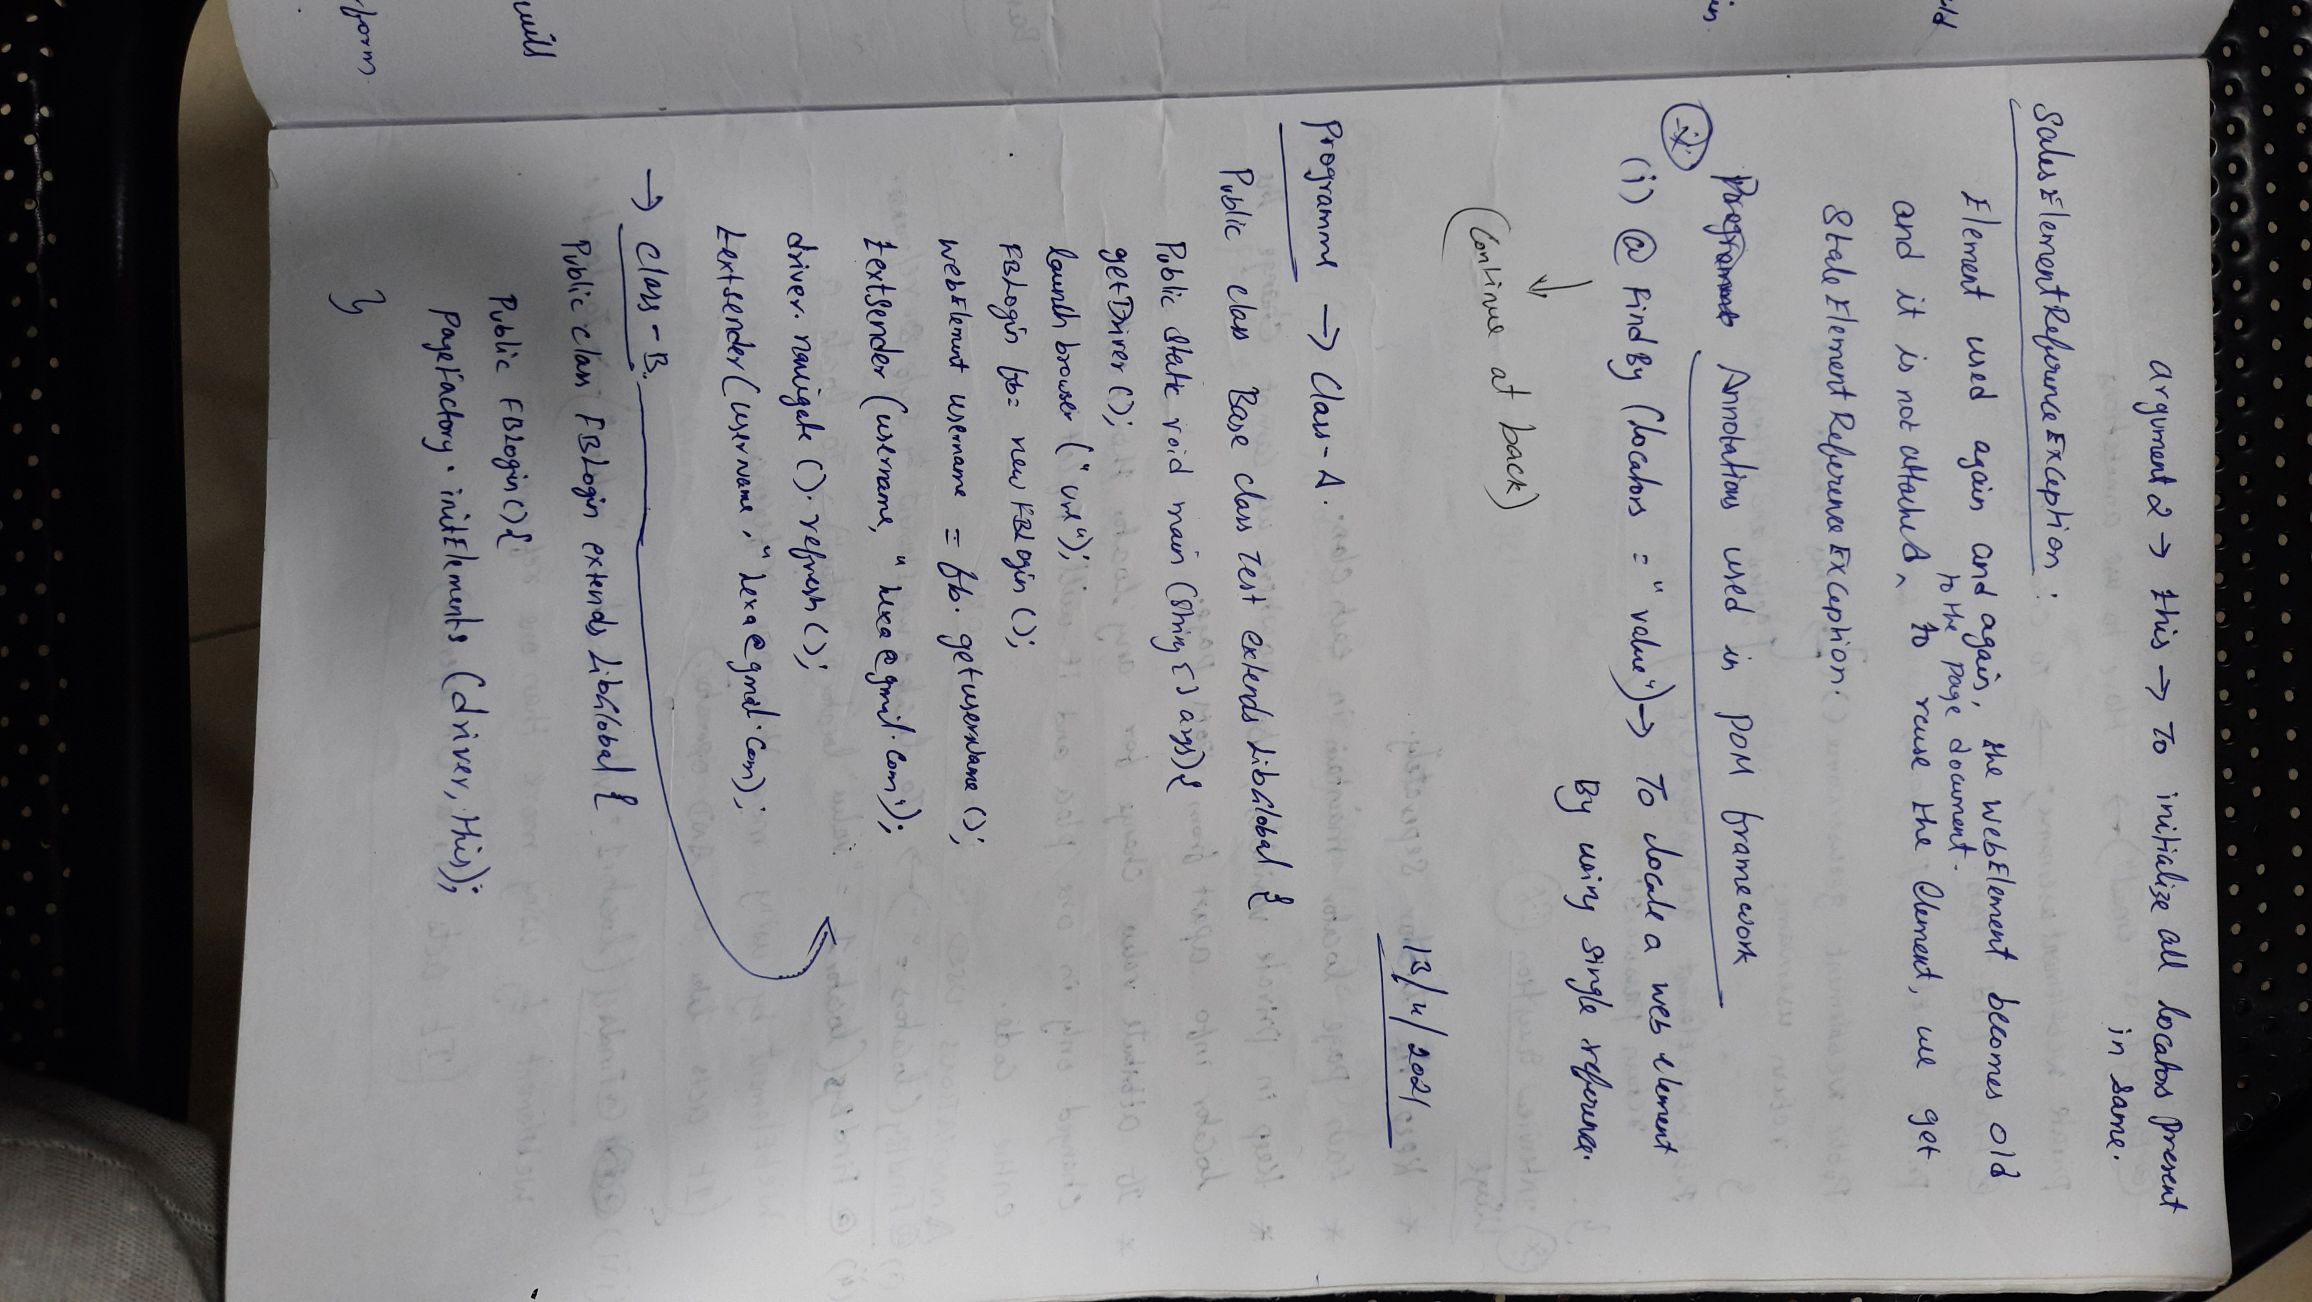 argument 2 → this → To initialize all locators present
in same.
SalesElementReferenceException :
Element used again and again, the webElement becomes old
to the page document.
and it is not attached ^ to reuse the element, we get
StaleElementReferenceException.
* Annotations used in POM framework
(i) @ Find By (locators = "value") → To locate a web element
By using single reference.
(Continue at back)
Programme → Class - A.
Public class Base class Test extends LibGlobal {
Public static void main (String [] args) {
getDriver ();
launch browser ("url");
FBLogin fb = new FBLogin ();
WebElement username = fb. getusername ();
textSender (username, "lexa@gmil.com");
driver. navigate (). refresh ();
textsender (username, "lexa@gmal.com);
→ Class - B.
Public class FBLogin extends LibGlobal {
Public FBLogin () {
PageFactory. initElements (driver, this);
}
will
form.